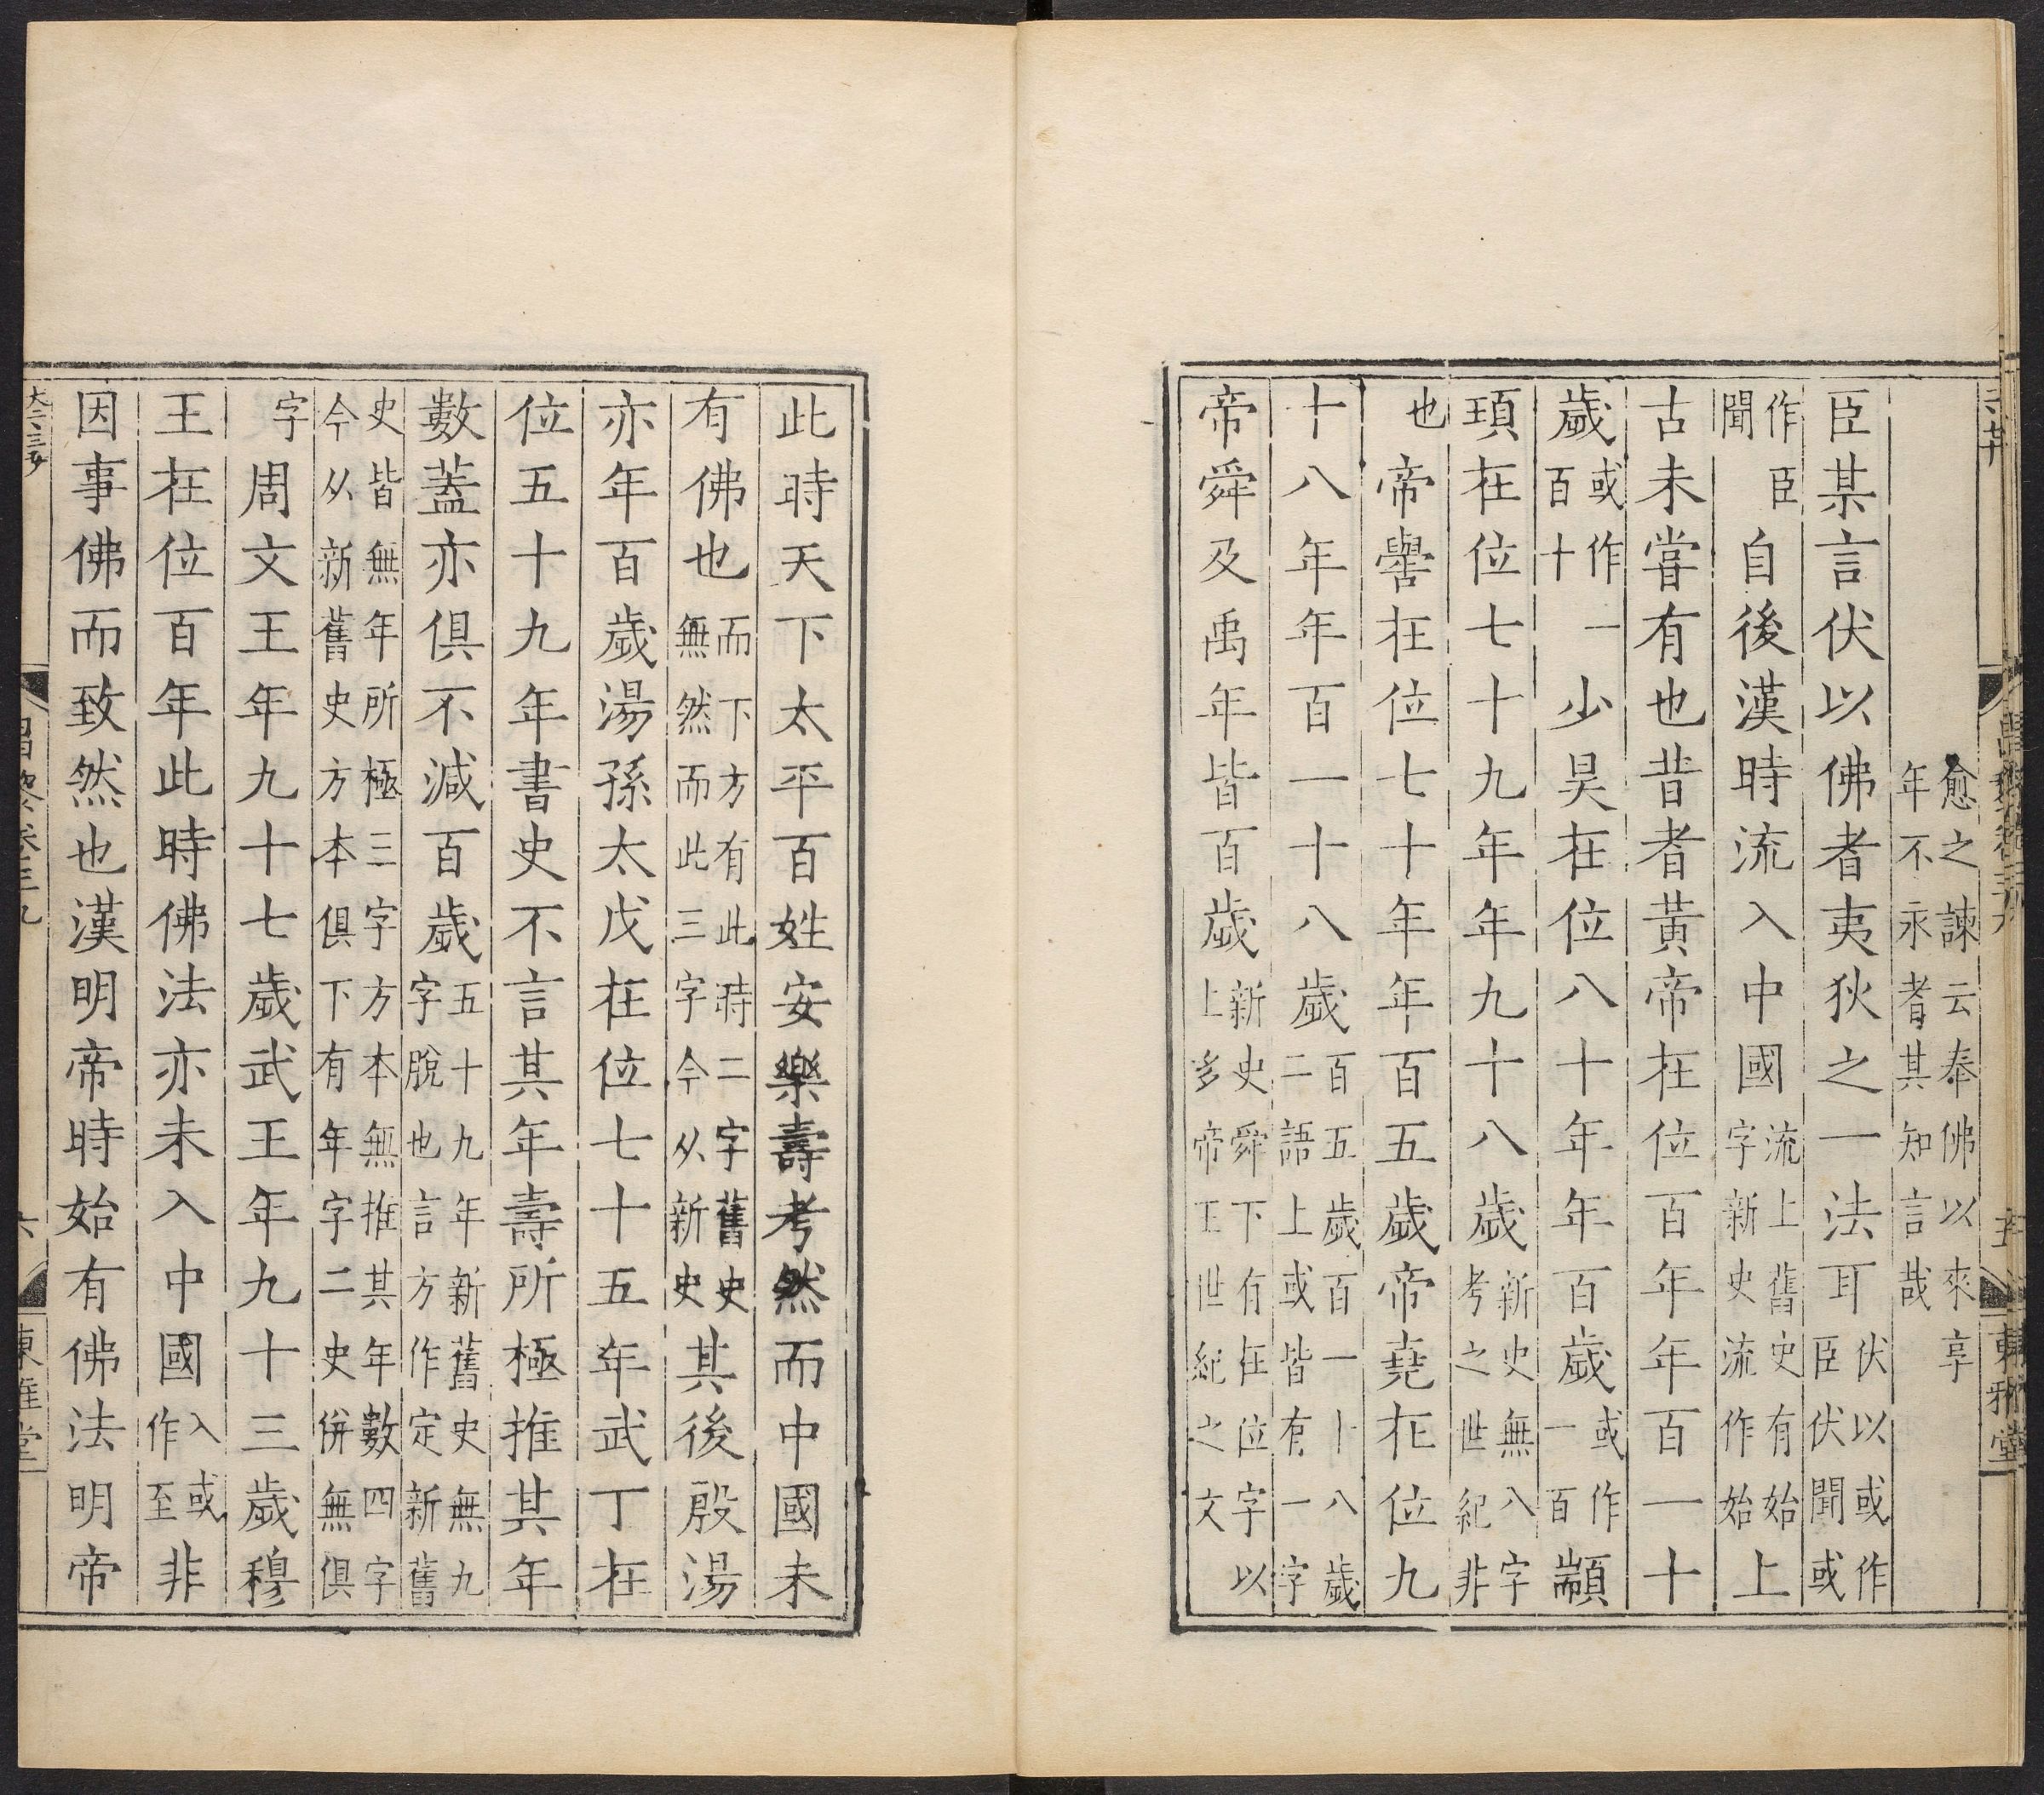 愈之諫云奉佛以來享
年不永者其知言哉
臣某言伏以佛者夷狄之一法耳伏以或作臣伏聞或
作聞臣自後漢時流入中國流上舊史有始字新史流作始上
古未嘗有也昔者黃帝在位百年年百一十
歲或作一百十少昊在位八十年年百歲或作一百顓
頊在位七十九年年九十八歲新史無八字考之世紀非
也帝嚳在位七十年年百五歲帝堯在位九
十八年年百一十八歲百五歲百一十八歲二語上或皆有一字
帝舜及禹年皆百歲新史舜下有在位字以上多帝王世紀之文
東雅堂
此時天下太平百姓安樂壽考然而中國未
有佛也而下方有此時二字舊史無然而此三字今从新史其後殷湯
亦年百歲湯孫太戊在位七十五年武丁在
位五十九年書史不言其年壽所極推其年
數蓋亦俱不減百歲五十九年新舊史無九字脫也言方作定新舊
史皆無年所極三字方本無推其年數四字今从新舊史方本俱下有年字二史併無俱
字周文王年九十七歲武王年九十三歲穆
王在位百年此時佛法亦未入中國入或作至非
因事佛而致然也漢明帝時始有佛法明帝